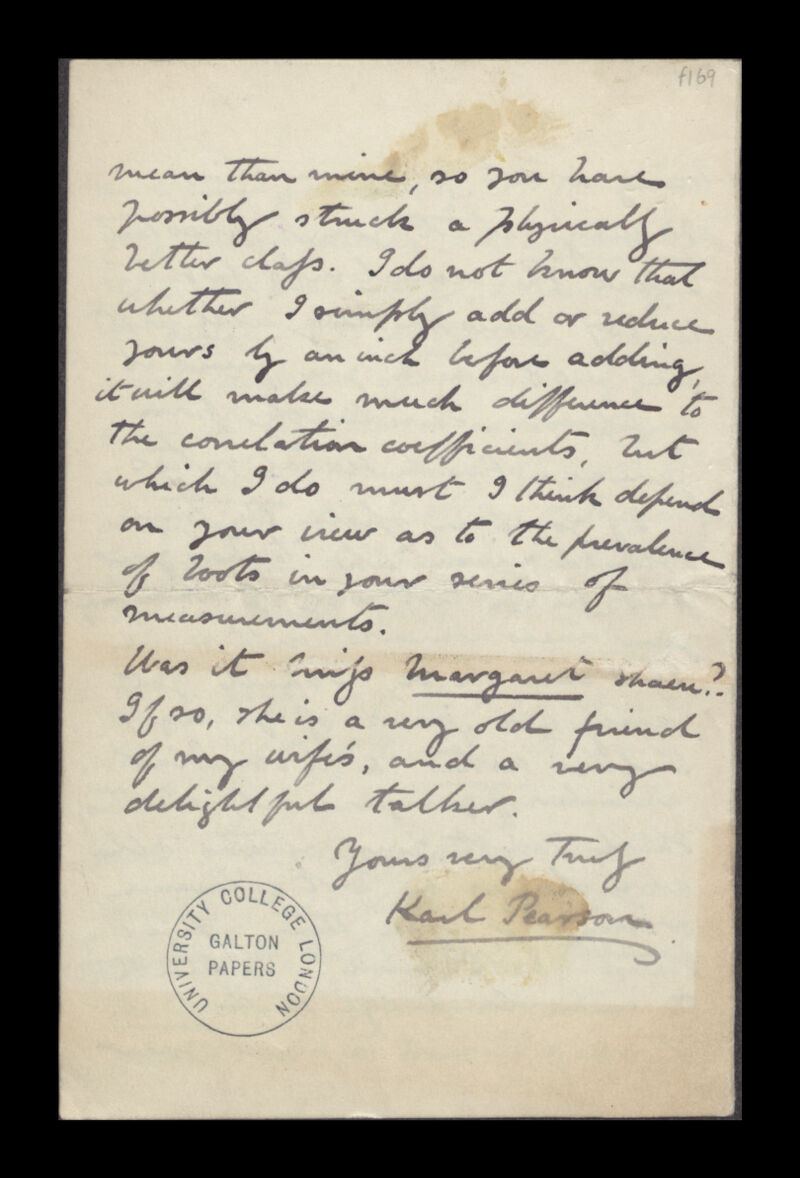 f169
mean than mine, so you have
possibly struck a physically
better class. I do not know that
whether I simply add or reduce
yours by an inch before adding,
it will make much difference to
the correlation coefficients, but
which I do must I think depend
on your view as to the prevalence
of boots in your series of
measurements.
Was it Miss Margaret Shaen?
If so, she is a very old friend
of my wife's, and a very
delightful talker.
Yours very truly
Karl Pearson
UNIVERSITY COLLEGE LONDON
GALTON
PAPERS